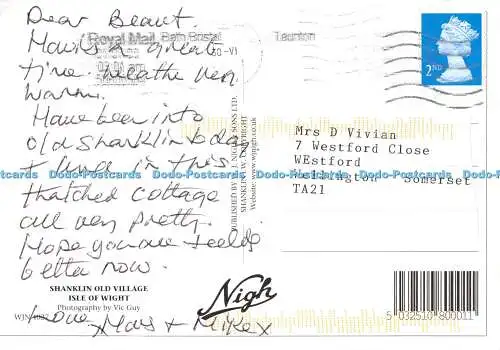 Dear
Having a great
time. weather very
warm.
Have been into
old Shanklin today
+ lunch in this
thatched cottage
all very pretty.
Hope you are feeling
better now.
Love
x Mary + Mike x
Royal Mail
Bath Bristol
Taunton
2ND
PUBLISHED BY W.J. NIGH & SONS LTD.
SHANKLIN I.W.
Website www.wjnigh.co.uk
Mrs D Vivian
7 Westford Close
WEstford
Wellington Somerset
TA21
SHANKLIN OLD VILLAGE
ISLE OF WIGHT
Photography by Vic Guy
WJN
Nigh
5 032510 800011
Dodo-Postcards Dodo-Postcards Dodo-Postcards Dodo-Postcards Dodo-Postcards Dodo-Postcards